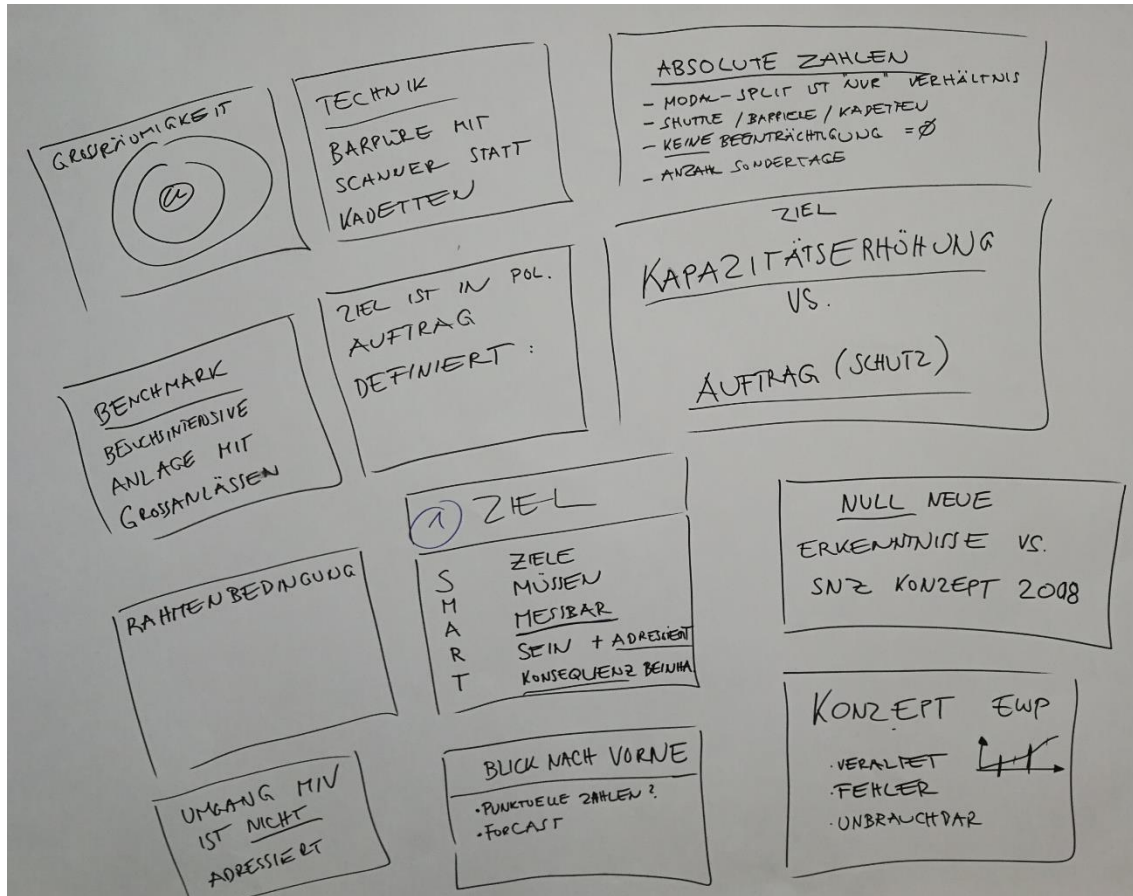 GROSSRÄUMIGKEIT
TECHNIK
BARRIERE MIT
SCANNER STATT
KADETTEN
ABSOLUTE ZAHLEN
- MODAL-SPLIT IST "NUR" VERHÄLTNIS
- SHUTTLE / BARRIERE / KADETTEN
- KEINE BEEINTRÄCHTIGUNG = Ø
- ANZAHL SONDERTAGE
BENCHMARK
BESUCHSINTENSIVE
ANLAGE MIT
GROSSANLÄSSEN
ZIEL IST IN POL.
AUFTRAG
DEFINIERT :
ZIEL
KAPAZITÄTSERHÖHUNG
VS.
AUFTRAG (SCHUTZ)
RAHMENBEDINGUNG
1 ZIEL
S ZIELE
M MÜSSEN
A MESSBAR
R SEIN + ADRESSIERT
T KONSEQUENZ BEINHA
NULL NEUE
ERKENNTNISSE VS.
SNZ KONZEPT 2008
UMGANG MIV
IST NICHT
ADRESSIERT
BLICK NACH VORNE
• PUNKTUELLE ZAHLEN?
• FORCAST
KONZEPT EWP
• VERALTET
• FEHLER
• UNBRAUCHBAR